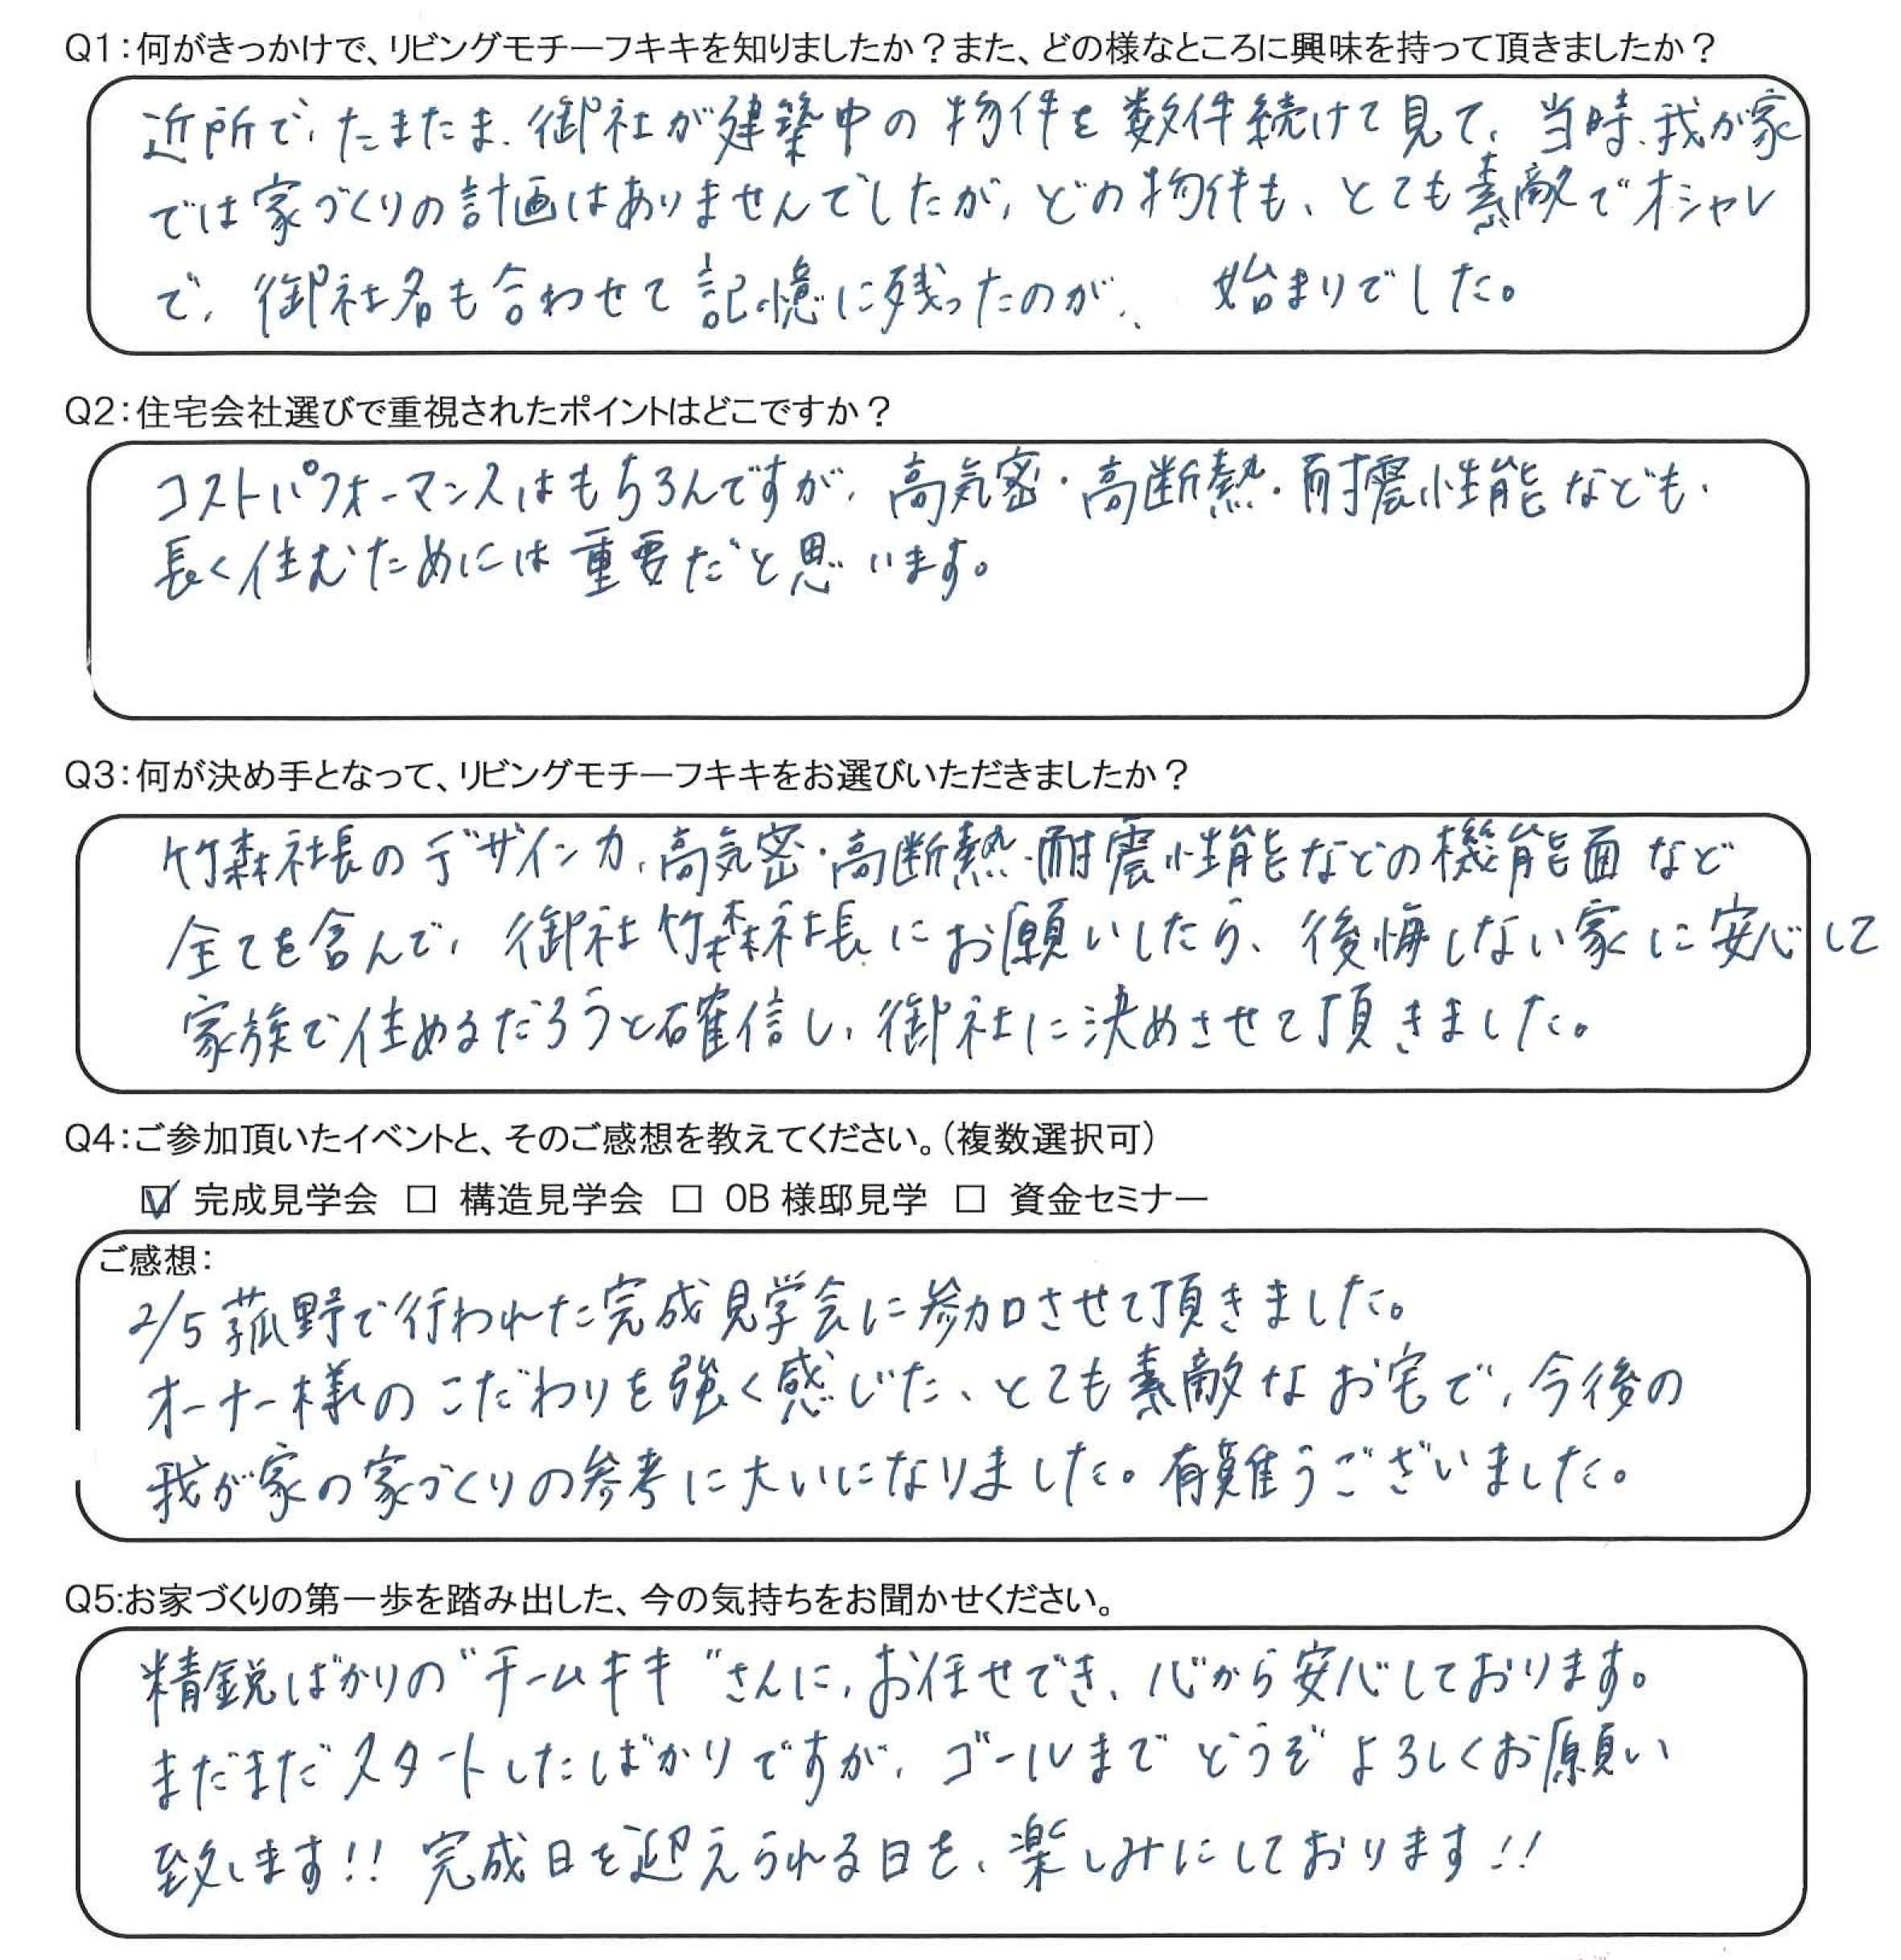 Q1：何がきっかけで、リビングモチーフキキを知りましたか？また、どの様なところに興味を持って頂きましたか？
近所で、たまたま、御社が建築中の物件を数件続けて見て、当時、我が家
では家づくりの計画はありませんでしたが、どの物件も、とても素敵でオシャレ
で、御社名も合わせて記憶に残ったのが、、始まりでした。
Q2：住宅会社選びで重視されたポイントはどこですか？
コストパフォーマンスはもちろんですが、高気密・高断熱・耐震性能なども、
長く住むためには重要だと思います。
Q3：何が決め手となって、リビングモチーフキキをお選びいただきましたか？
竹森社長のデザイン力、高気密・高断熱・耐震性能などの機能面など
全てを含んで、御社竹森社長にお願いしたら、後悔しない家に安心して
家族で住めるだろうと確信し、御社に決めさせて頂きました。
Q4：ご参加頂いたイベントと、そのご感想を教えてください。（複数選択可）
☑ 完成見学会 □ 構造見学会 □ OB様邸見学 □ 資金セミナー
ご感想：
2/5 菰野で行われた完成見学会に参加させて頂きました。
オーナー様のこだわりを強く感じた、とても素敵なお宅で、今後の
我が家の家づくりの参考に大いになりました。有難うございました。
Q5:お家づくりの第一歩を踏み出した、今の気持ちをお聞かせください。
精鋭ばかりの“チームキキ”さんに、お任せでき、心から安心しております。
まだまだスタートしたばかりですが、ゴールまでどうぞよろしくお願い
致します!! 完成日を迎えられる日を、楽しみにしております!!